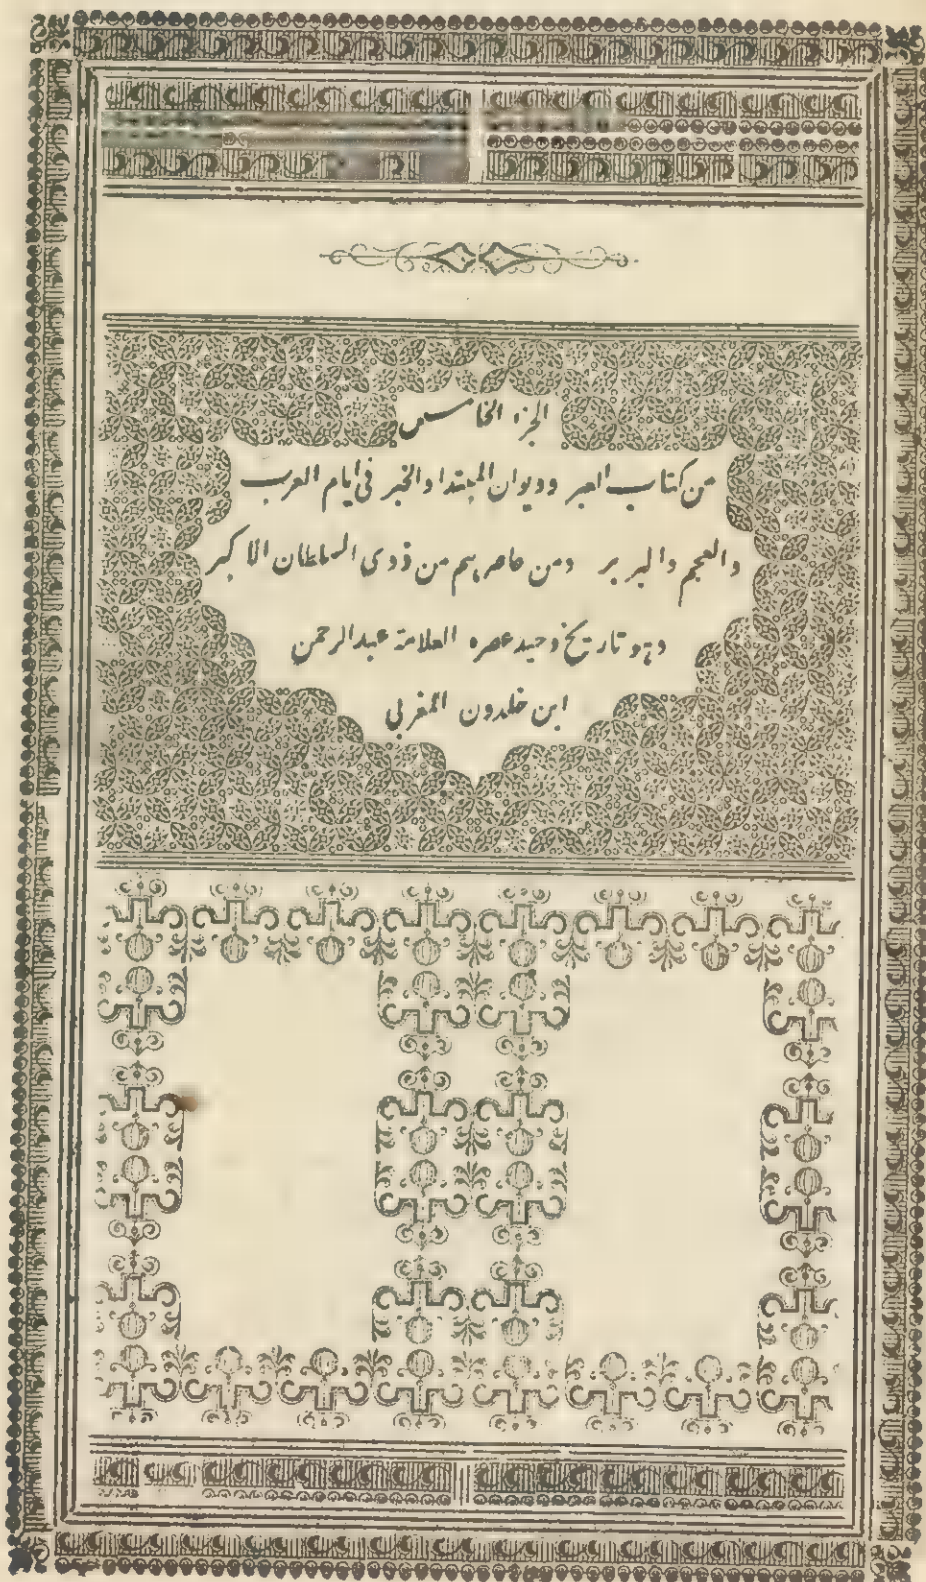 الجزء الخامس
من كتاب العبر وديوان المبتدا والخبر فى ايام العرب
والعجم والبربر ومن عاصرهم من ذوى السلطان الاكبر
وهو تاريخ وحيد عصره العلامة عبدالرحمن
ابن خلدون المغربى